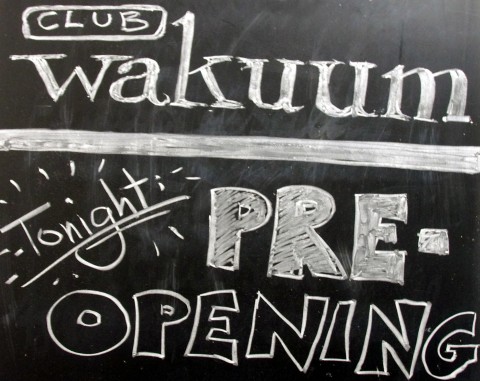 CLUB
wakuum
Tonight PRE-
OPENING